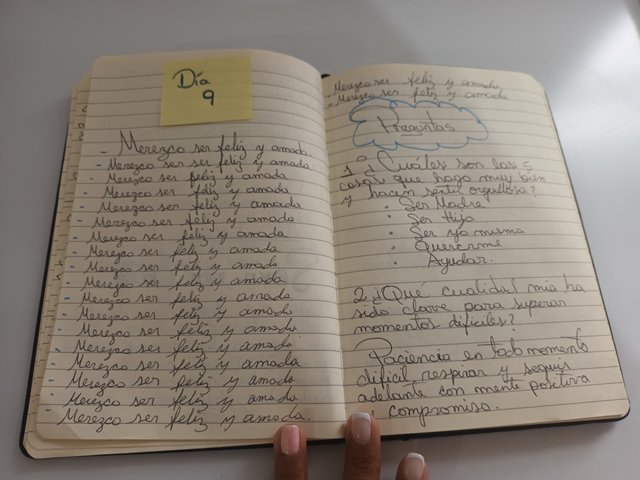 Día
9
- Merezco ser feliz y amada.
- Merezco ser ser feliz y amada
- Merezco ser feliz y amada
- Merezco ser feliz y amada
- Merezco ser feliz y amada
- Merezco ser feliz y amada
- Merezco ser feliz y amada
- Merezco ser feliz y amada
- Merezco ser feliz y amada
- Merezco ser feliz y amada
- Merezco ser feliz y amada
- Merezco ser feliz y amada
- Merezco ser feliz y amada
- Merezco ser feliz y amada
- Merezco ser feliz y amada
- Merezco ser feliz y amada
- Merezco ser feliz y amada
- Merezco ser feliz y amada.
- Merezco ser feliz y amada
- Merezco ser feliz y amada
Preguntas.
1 ¿Cuáles son las 5
cosas que hago muy bien
y hacen sentir orgullosa?
• Ser Madre
• Ser Hija
• Ser yo misma
• Quererme
• Ayudar.
2 ¿Qué cualidad mia ha
sido clave para superar
momentos dificiles?
Paciencia en todo momento
difícil respirar y seguir
adelante con mente positiva
compromiso.